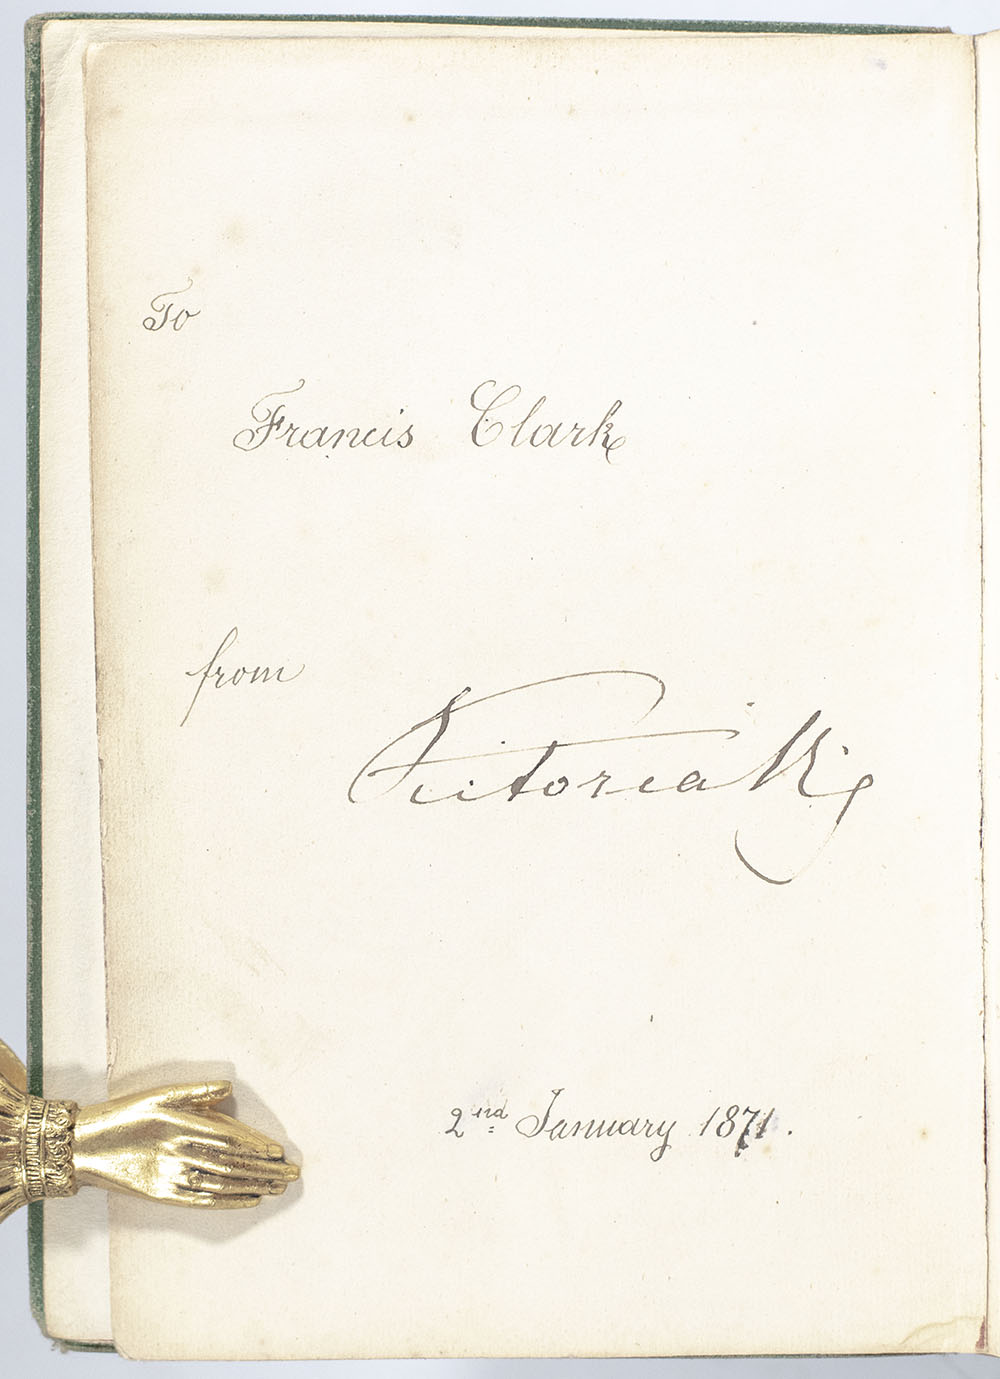 To
Francis Clark
from
Victoria R
2nd January 1871.